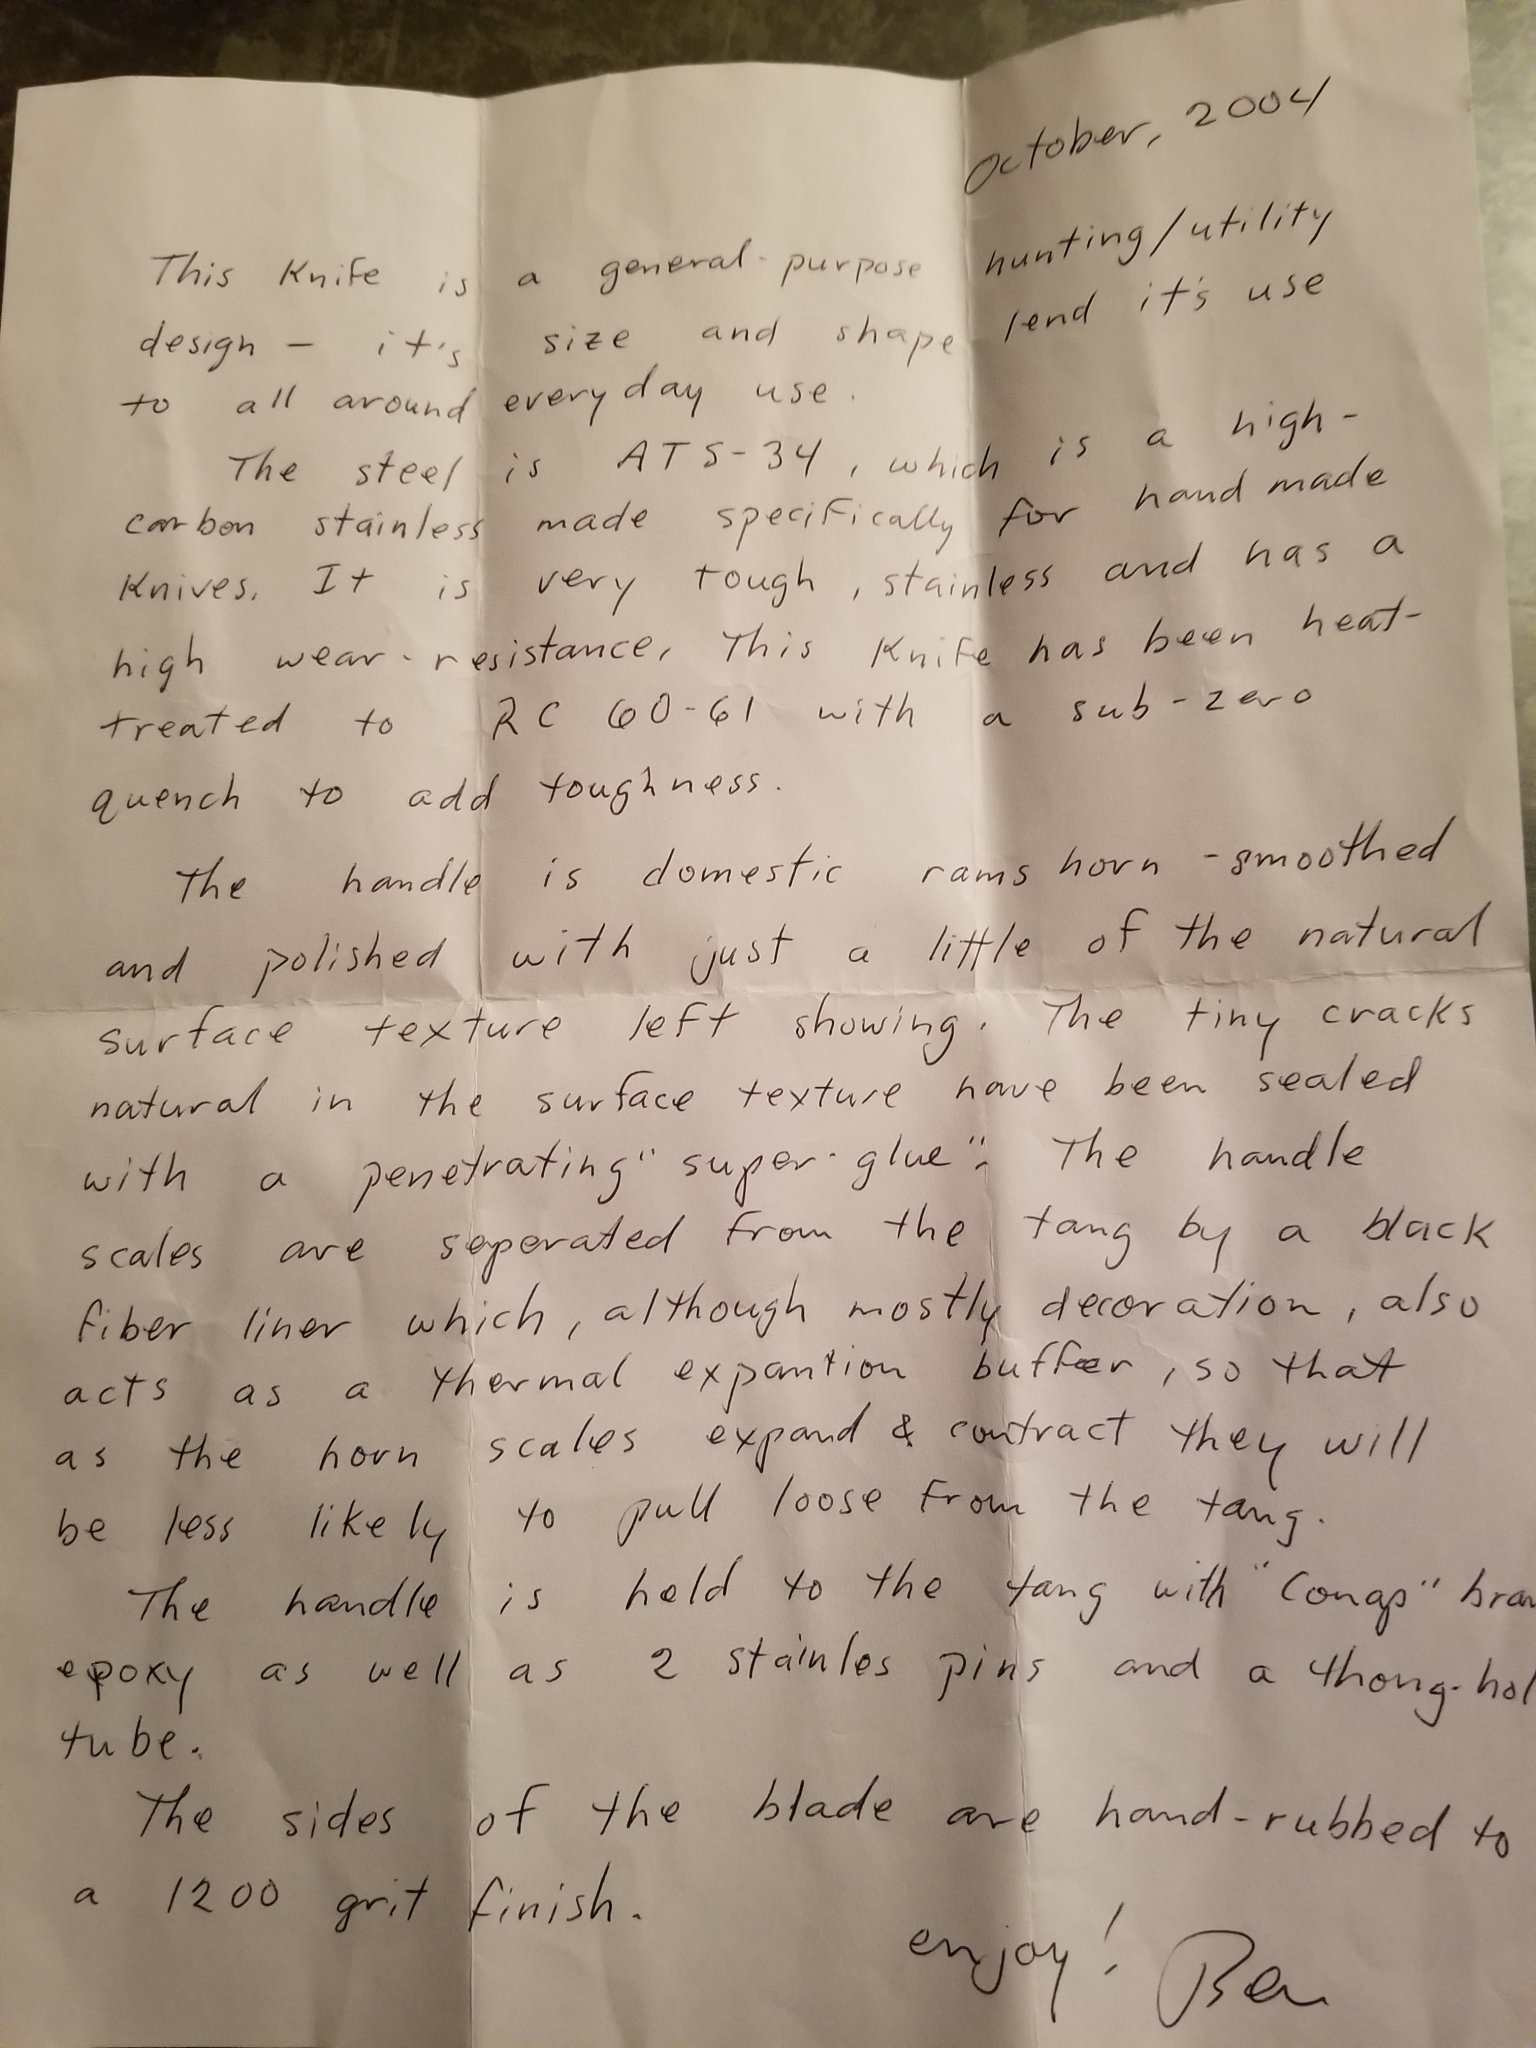 October, 2004
This Knife is a general-purpose hunting/utility
design - it's size and shape lend it's use
to all around everyday use.
The steel is ATS-34, which is a high-
carbon stainless made specifically for hand made
Knives. It is very tough, stainless and has a
high wear-resistance. This Knife has been heat-
treated to RC 60-61 with a sub-zero
quench to add toughness.
The handle is domestic rams horn - smoothed
and polished with just a little of the natural
surface texture left showing. The tiny cracks
natural in the surface texture have been sealed
with a penetrating "super-glue". The handle
scales are seperated from the tang by a black
fiber liner which, although mostly decoration, also
acts as a thermal expantion buffer, so that
as the horn scales expand & contract they will
be less likely to pull loose from the tang.
The handle is held to the tang with "Conap" bran
epoxy as well as 2 stainles pins and a thong-hol
tube.
The sides of the blade are hand-rubbed to
a 1200 grit finish.
enjoy! Ben